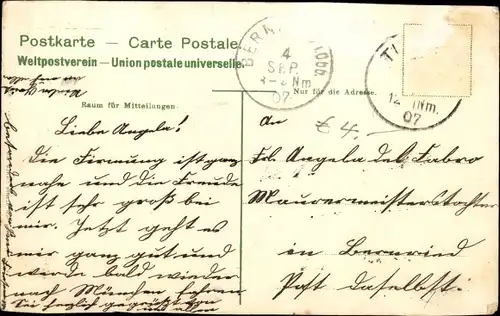 Postkarte — Carte Postale.
Weltpostverein — Union postale universelle.
4
SEP.
Nm
07
12
Nm.
07
Nur für die Adresse.
Raum für Mitteilungen.
Liebe Angela!
Die Firmung ist ganz
nahe und die Freude
ist sehr groß bei
mir. Jetzt geht es
mir ganz gut und
werde bald wieder
nach München fahren
Sei herzlich gegrüßt von
und allen
An
Frl. Angela del Fabro
Maurermeisterstochter
in Bernried
Post daselbst.